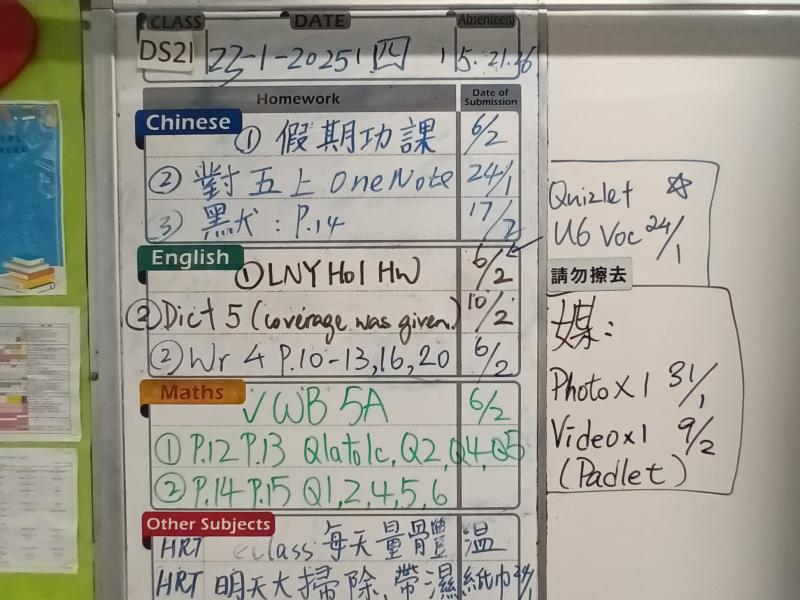 CLASS DATE Absentee(s)
DS21 23-1-2025 (四) 5. 21. 26
Homework Date of Submission
Chinese
① 假期功課 6/2
② 對五上 OneNote 24/1
③ 黑犬 : P.14 17/2
English
① LNY Hol HW 6/2
③ Dict 5 (coverage was given) 10/2
② Wr 4 P.10-13, 16, 20 6/2
Maths
✓ WB 5A 6/2
① P.12 P.13 Q1a to 1c, Q2, Q4, Q5
② P.14 P.15 Q1, 2, 4, 5, 6
Other Subjects
HRT eclass 每天量體溫
HRT 明天大掃除, 帶濕紙巾 24/1
Quizlet ☆
U6 Voc 24/1
請勿擦去
媒:
Photo x 1 31/1
Video x 1 9/2
(Padlet)